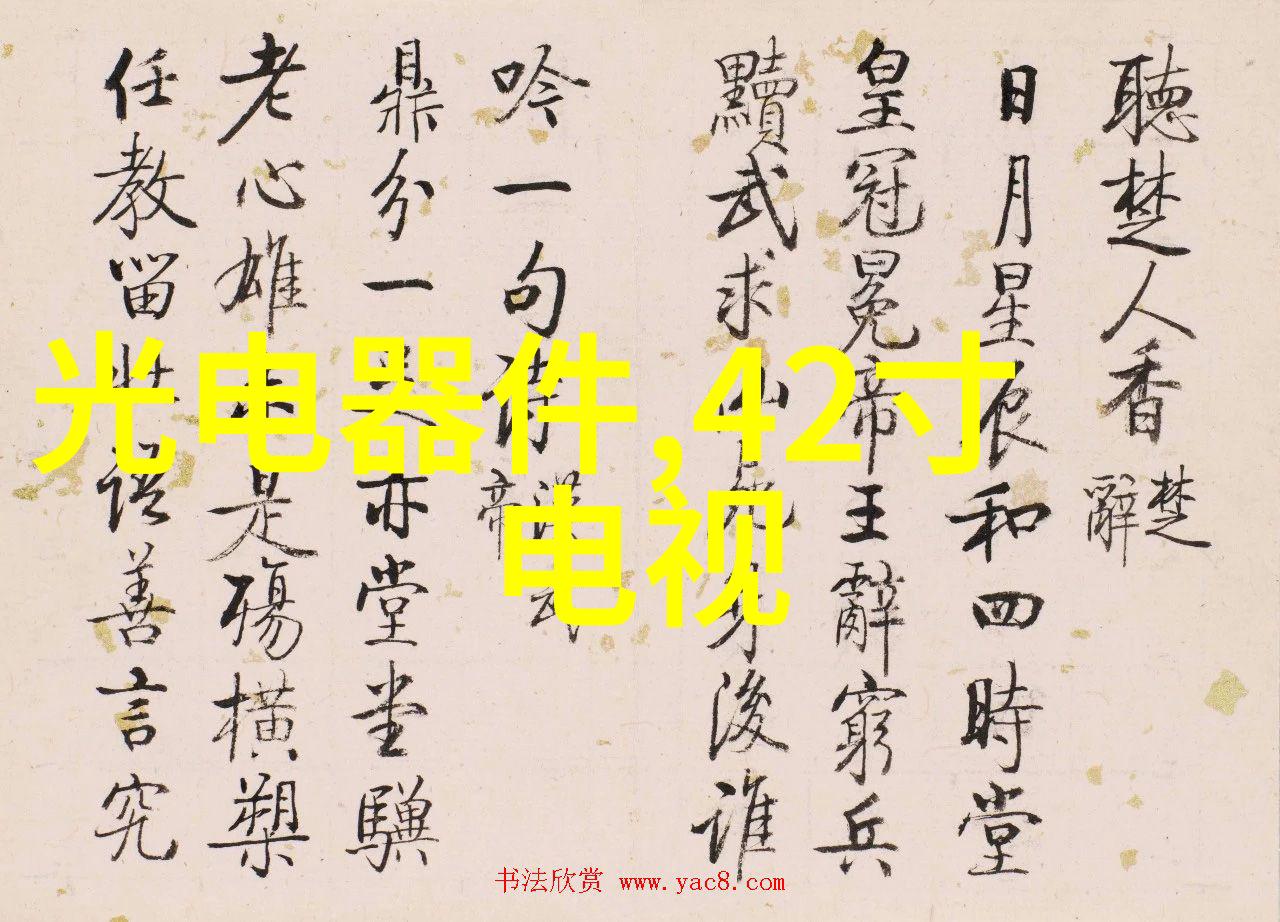 聽楚人香 楚辭
日月星辰和四時堂
皇冠冕帝王辭窮兵
黷武求仙身後誰
吟一句詩 漢武帝
鼎分一足亦堂堂驥
老心雄未是殤橫槊
任教留壯語善言究
光电器件,42寸
电视
书法欣赏 www.yac8.com